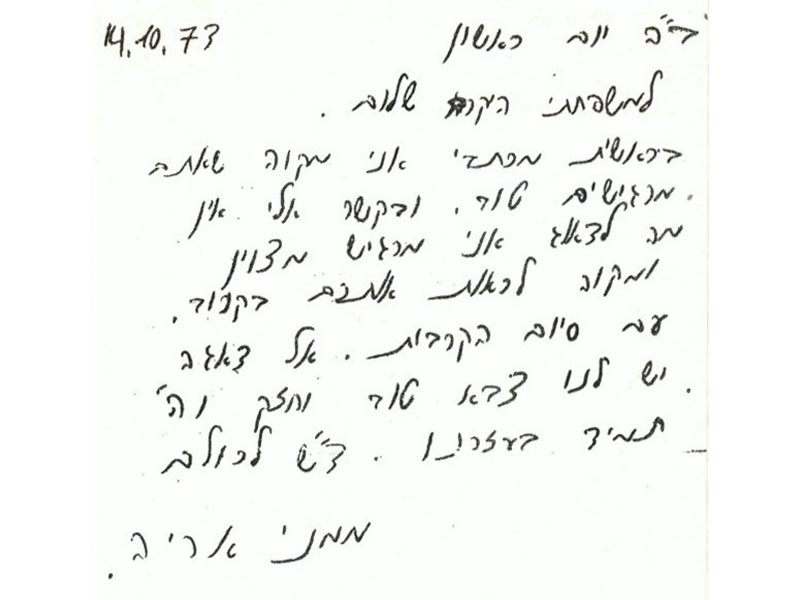 ב"ה יום ראשון 14.10.73
למשפחתי היקרה שלום.
בראשית מכתבי אני מקוה שאתם
מרגישים טוב. ובקשר אלי אין
מה לדאוג אני מרגיש מצוין
ומקוה לראות אתכם בקרוב.
עם סיום הקרבות. אל דאגה
יש לנו צבא טוב וחזק וה'
תמיד בעזרתנו. ד"ש לכולם
ממני אריה.